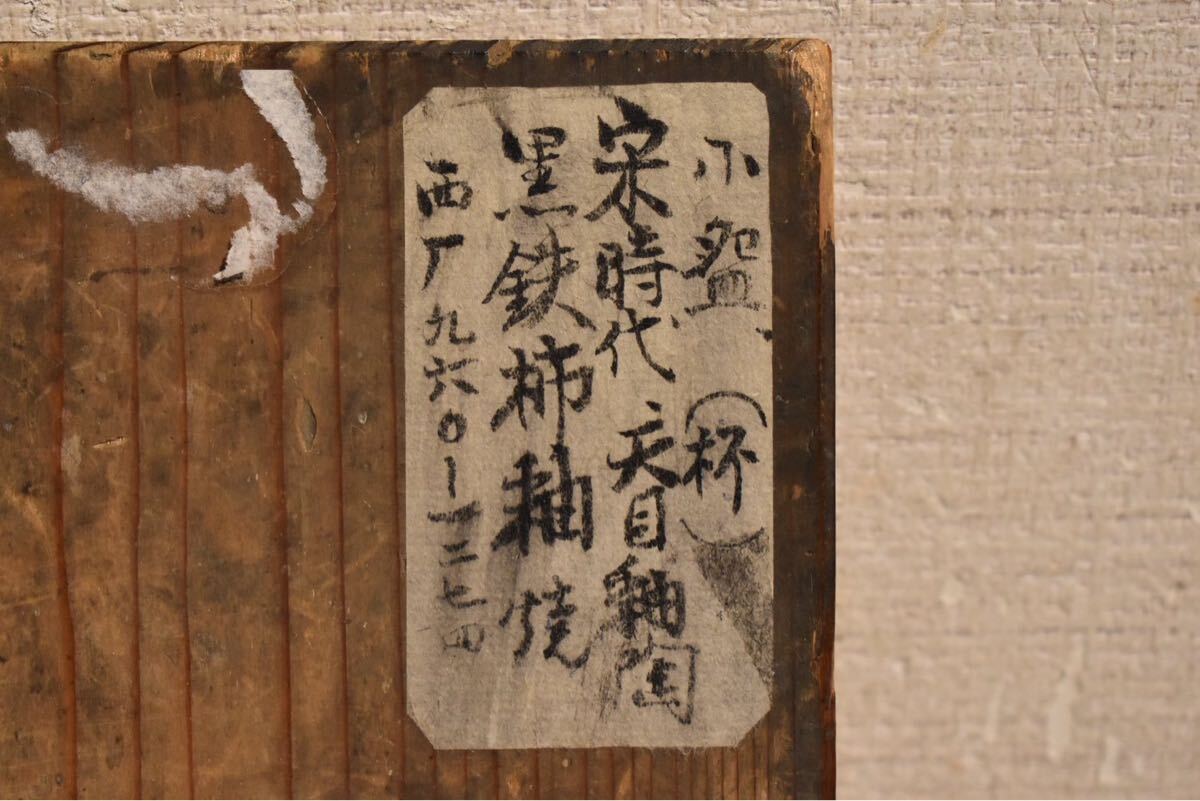 小盌、(杯)
宋時代 天目釉陶
黒鉄柿釉焼
西厂九六〇ー一二七四